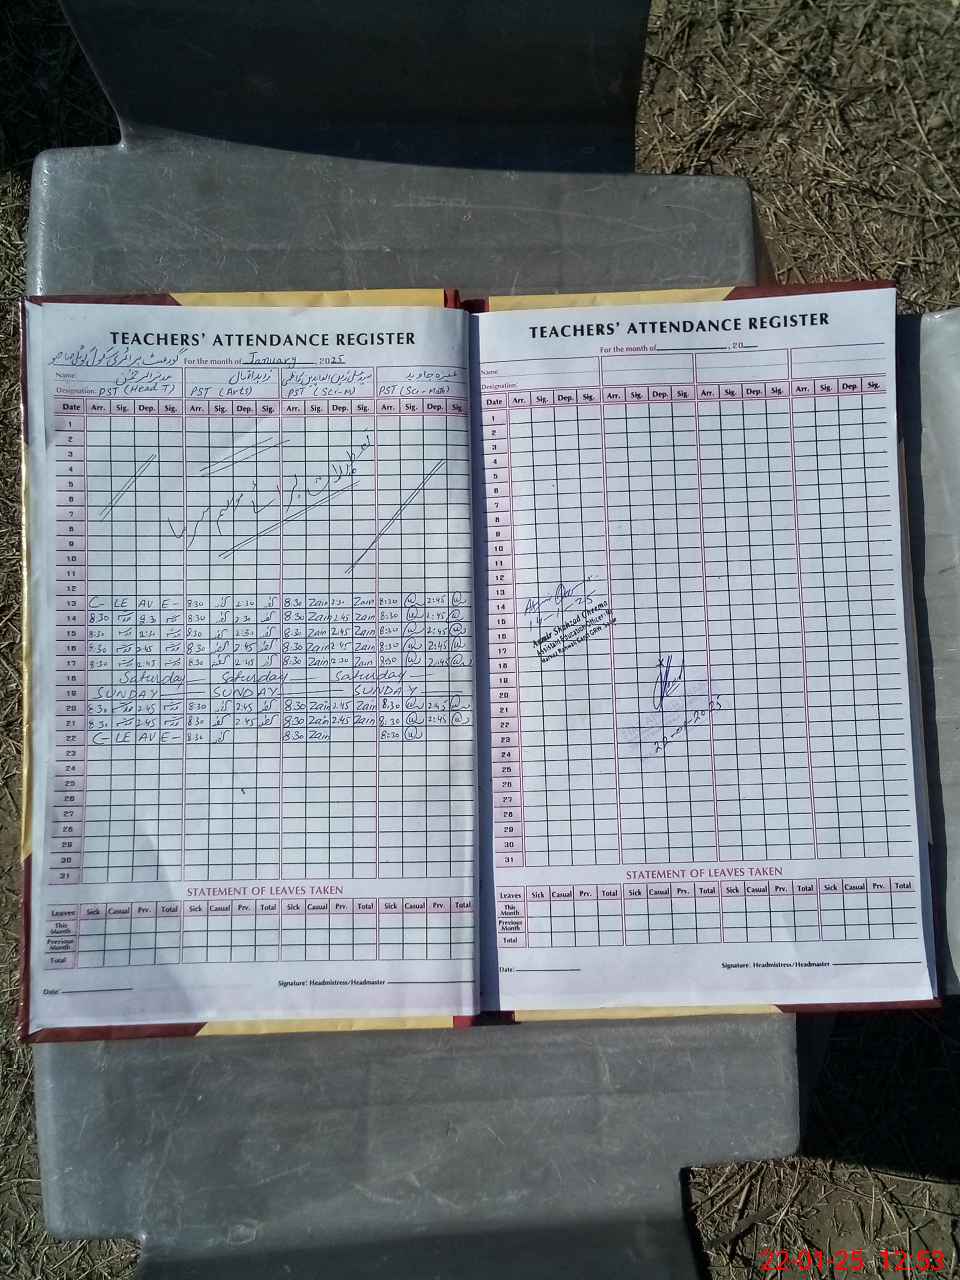 TEACHERS' ATTENDANCE REGISTER
گورنمنٹ پرائمری سکول
For the month of January, 2025
Name:
نوید اقبال
سید علی زین العابدین کاظمی
حمزہ جاوید
Designation: PST (Head T) PST (Arts) PST (Sci-M) PST (Sci-Math)
Date Arr. Sig. Dep. Sig. Arr. Sig. Dep. Sig. Arr. Sig. Dep. Sig. Arr. Sig. Dep. Sig.
1
2
3
4
5
6
7
8
9
10
11
12
تعطیلات برائے موسم سرما
13 C- LE AV E- 8:30 2:30 8:30 Zain 2:30 Zain 8:30 2:45
14 8:30 8:30 2:30 8:30 Zain 2:45 Zain 8:30 2:45
15 8:30 2:30 8:30 2:30 8:30 Zain 2:45 Zain 8:30 2:45
16 8:30 2:45 8:30 2:45 8:30 Zain 2:45 Zain 8:30 2:45
17 8:30 2:45 8:30 2:45 8:30 Zain 2:30 Zain 8:30 2:45
18 Saturday Saturday Saturday
19 SUNDAY SUNDAY SUNDAY
20 8:30 2:45 8:30 2:45 8:30 Zain 2:45 Zain 8:30 2:45
21 8:30 2:45 8:30 2:45 8:30 Zain 2:45 Zain 8:30 2:45
22 C- LE AV E- 8:30 8:30 Zain 8:30
23
24
25
26
27
28
29
30
31
STATEMENT OF LEAVES TAKEN
Leaves Sick Casual Prv. Total Sick Casual Prv. Total Sick Casual Prv. Total Sick Casual Prv. Total
This Month
Previous Month
Total
Date: Signature: Headmistress/Headmaster
TEACHERS' ATTENDANCE REGISTER
For the month of , 20
Name:
Designation:
Date Arr. Sig. Dep. Sig. Arr. Sig. Dep. Sig. Arr. Sig. Dep. Sig. Arr. Sig. Dep. Sig.
1
2
3
4
5
6
7
8
9
10
11
12
13
14
15
16
17
18
19
20
21
22
23
24
25
26
27
28
29
30
31
14-1-25
Aamir Shahzad Cheema
Assistant Education Officer
22-01-2025
STATEMENT OF LEAVES TAKEN
Leaves Sick Casual Prv. Total Sick Casual Prv. Total Sick Casual Prv. Total Sick Casual Prv. Total
This Month
Previous Month
Total
Date: Signature: Headmistress/Headmaster
22-01-25 12:53